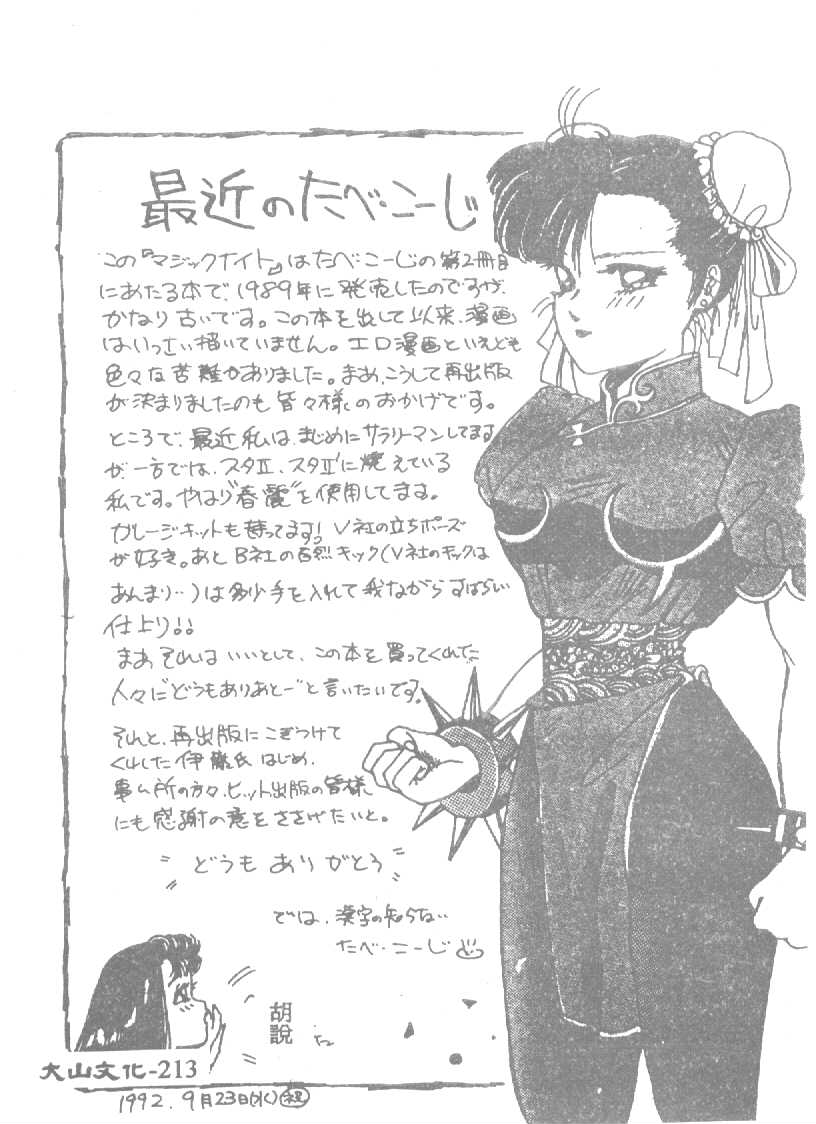 最近のたべ・こーじ
この『マジックナイト』はたべ・こーじの第2冊目
にあたる本で、1989年に発売したのですが、
かなり古いです。この本を出して以来、漫画
はいっさい描いていません。エロ漫画といえども
色々な苦難がありました。まあ、こうして再出版
が決まりましたのも皆々様のおかげです。
ところで、最近私は、まじめにサラリーマンしてます
が、一方では、スタⅡ、スタⅡ'に燃えている
私です。やはり"春麗"を使用してます。
ガレージキットも持ってます! V社の立ちポーズ
が好き。あと B社の百烈キック(V社のキックは
あんまり・・)は多少手を入れて我ながらすばらしい
仕上り!!
まあ それは いいとして、この本を買ってくれた
人々に"どうもありあとー"と言いたいです。
それと、再出版にこぎつけて
くれした伊藤氏はじめ、
事ム所の方々、ヒット出版の皆様
にも感謝の意をささげたいと。
どうも ありがとう
では、漢字の知らない
たべ・こーじ
胡說
大山文化-213
1992.9月23日(水)祝